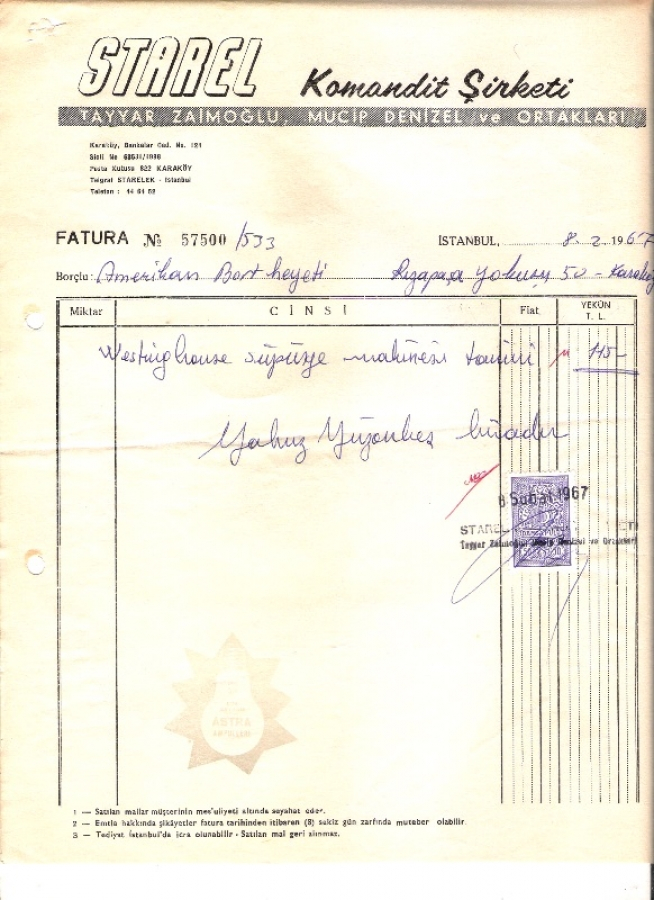 STAREL Komandit Şirketi
TAYYAR ZAİMOĞLU, MUCİP DENİZEL ve ORTAKLARI
Karaköy, Bankalar Cad. No. 121
Sicil No
Posta Kutusu 822 KARAKÖY
Telgraf STARELEK - İstanbul
Telefon : 44 61 52
FATURA № 57500 /533
İSTANBUL, 8. 2. 1967
Borçlu: Amerikan Bort heyeti Rızapaşa Yokuşu 50 - Karaköy
Miktar CİNSİ Fiat YEKÜN T. L.
Westinghouse süpürge makinesi tamiri 115-
Yalnız Yüzonbeş liradır
8 Şubat 1967
STAREL
Tayyar Zaimoğlu Mucip Denizel ve Ortakları
ASTRA
1 — Satılan mallar müşterinin mes'uliyeti altında seyahat eder.
2 — Emtia hakkında şikâyetler fatura tarihinden itibaren (8) sekiz gün zarfında muteber olabilir.
3 — Tediyat İstanbul'da icra olunabilir - Satılan mal geri alınmaz.